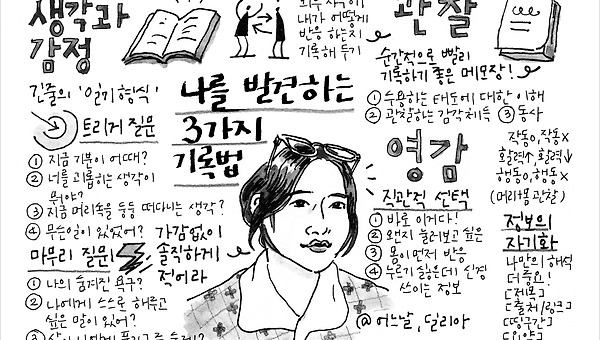 생각과
감정
내가 어떻게
반응 하는지
기록해 두기
관찰
순간적으로 빨리
기록하기 좋은 메모장!
① 수용하는 태도에 대한 이해
② 관찰하는 감각체득 ③ 동사
작동o, 작동x
활력↑, 활력↓
행동o, 행동x
(머리+몸 관찰)
긴줄의 '일기 형식'
트리거 질문
① 지금 기분이 어때?
② 너를 괴롭히는 생각이
뭐야?
③ 지금 머릿속을 둥둥 떠다니는 생각?
④ 무슨일이 있었어?
마무리 질문
① 나의 숨겨진 욕구?
② 나에게 스스로 해주고
싶은 말이 있어?
나를 발견하는
3가지
기록법
가감없이
솔직하게
적어라
영감
직관적 선택
① 바로 이거다!
② 왠지 눌러보고 싶은
③ 몸이 먼저 반응
④ 누르기 싫은데 신경
쓰이는 정보
@어느날, 달리아
정보의
자기화
나만의 해석
더 중요!
[제목]
[출처/링크]
[띵구간]
[요약]